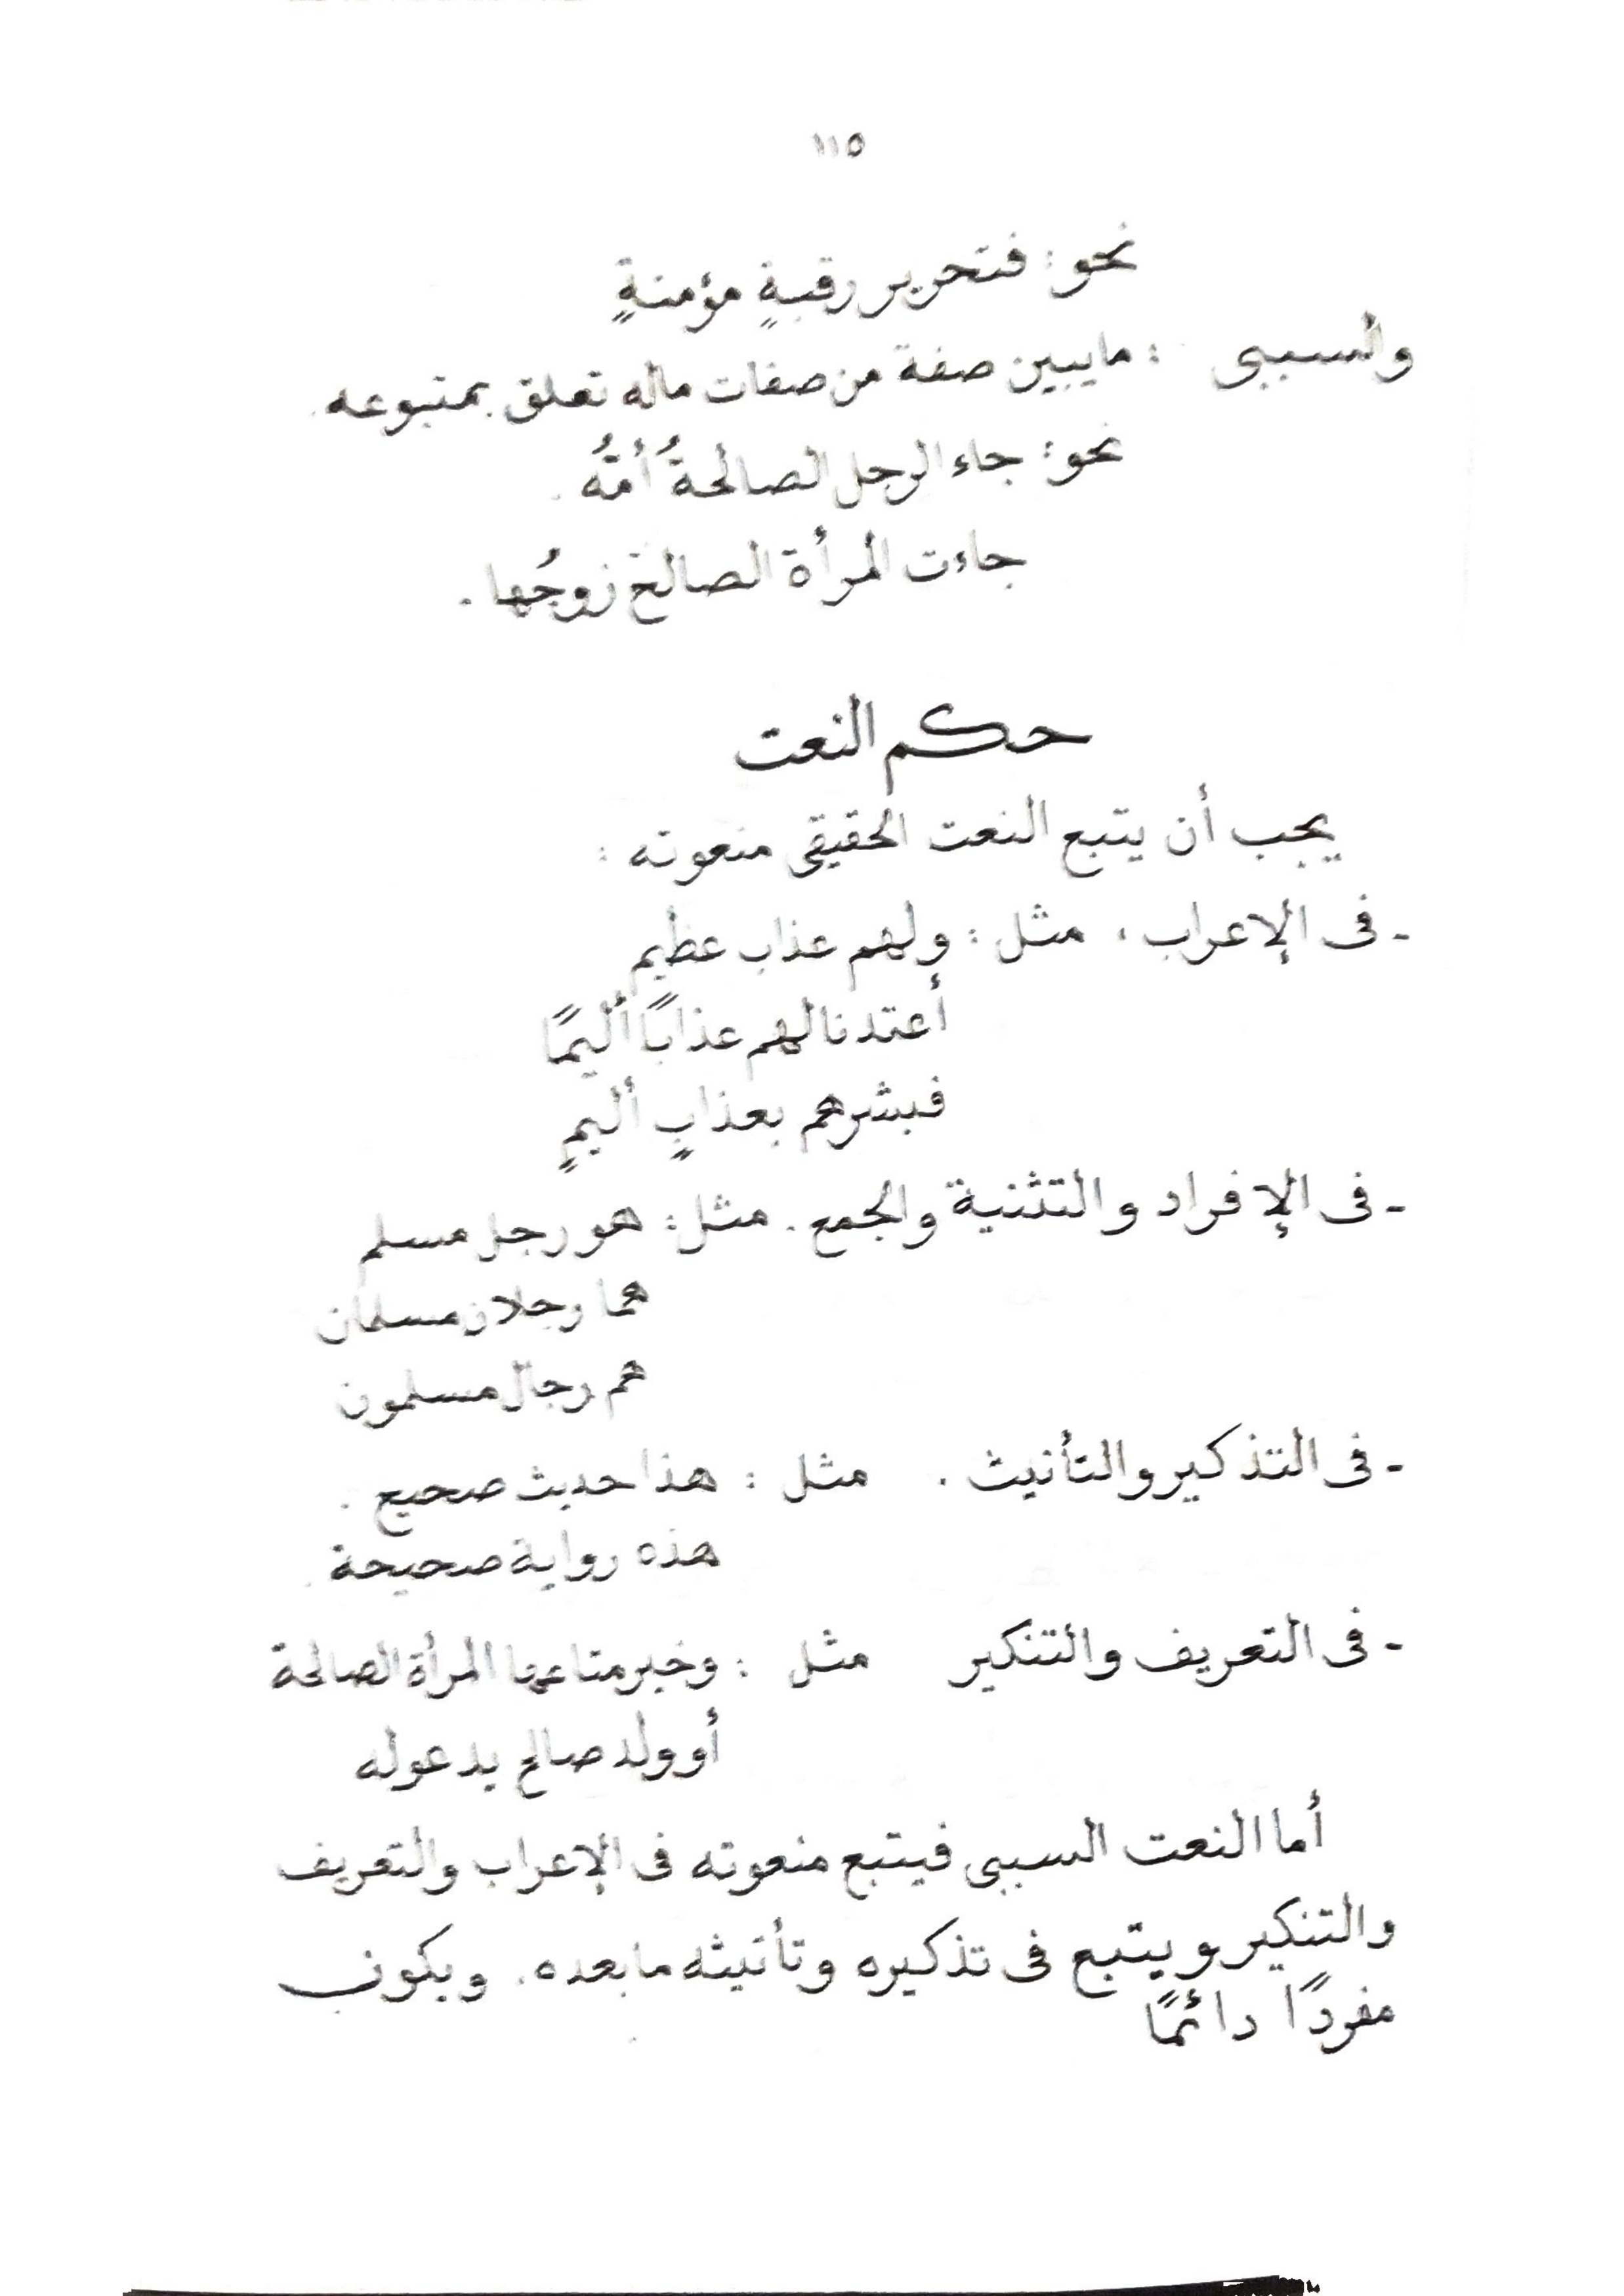 ١١٥
نحو: فتحرير رقبةٍ مؤمنةٍ
والسببى : مايبين صفة من صفات ماله تعلق بمتبوعه.
نحو: جاء الرجل الصالحةُ أمُّه.
جاءت المرأة الصالح زوجُها.
حكم النعت
يجب أن يتبع النعت الحقيقى منعوته :
- فى الإعراب، مثل : ولهم عذاب عظيم
أعتدنا لهم عذابًا أليمًا
فبشرهم بعذابٍ أليمٍ
- فى الإفراد والتثنية والجمع. مثل: هو رجل مسلم
هما رجلان مسلمان
هم رجال مسلمون
- فى التذكير والتأنيث. مثل : هذا حديث صحيح.
هذه رواية صحيحة.
- فى التعريف والتنكير مثل : وخير متاعها المرأة الصالحة
أو ولد صالح يدعو له
أما النعت السببى فيتبع منعوته فى الإعراب والتعريف
والتنكير ويتبع فى تذكيره وتأنيثه مابعده. ويكون
مفردًا دائمًا